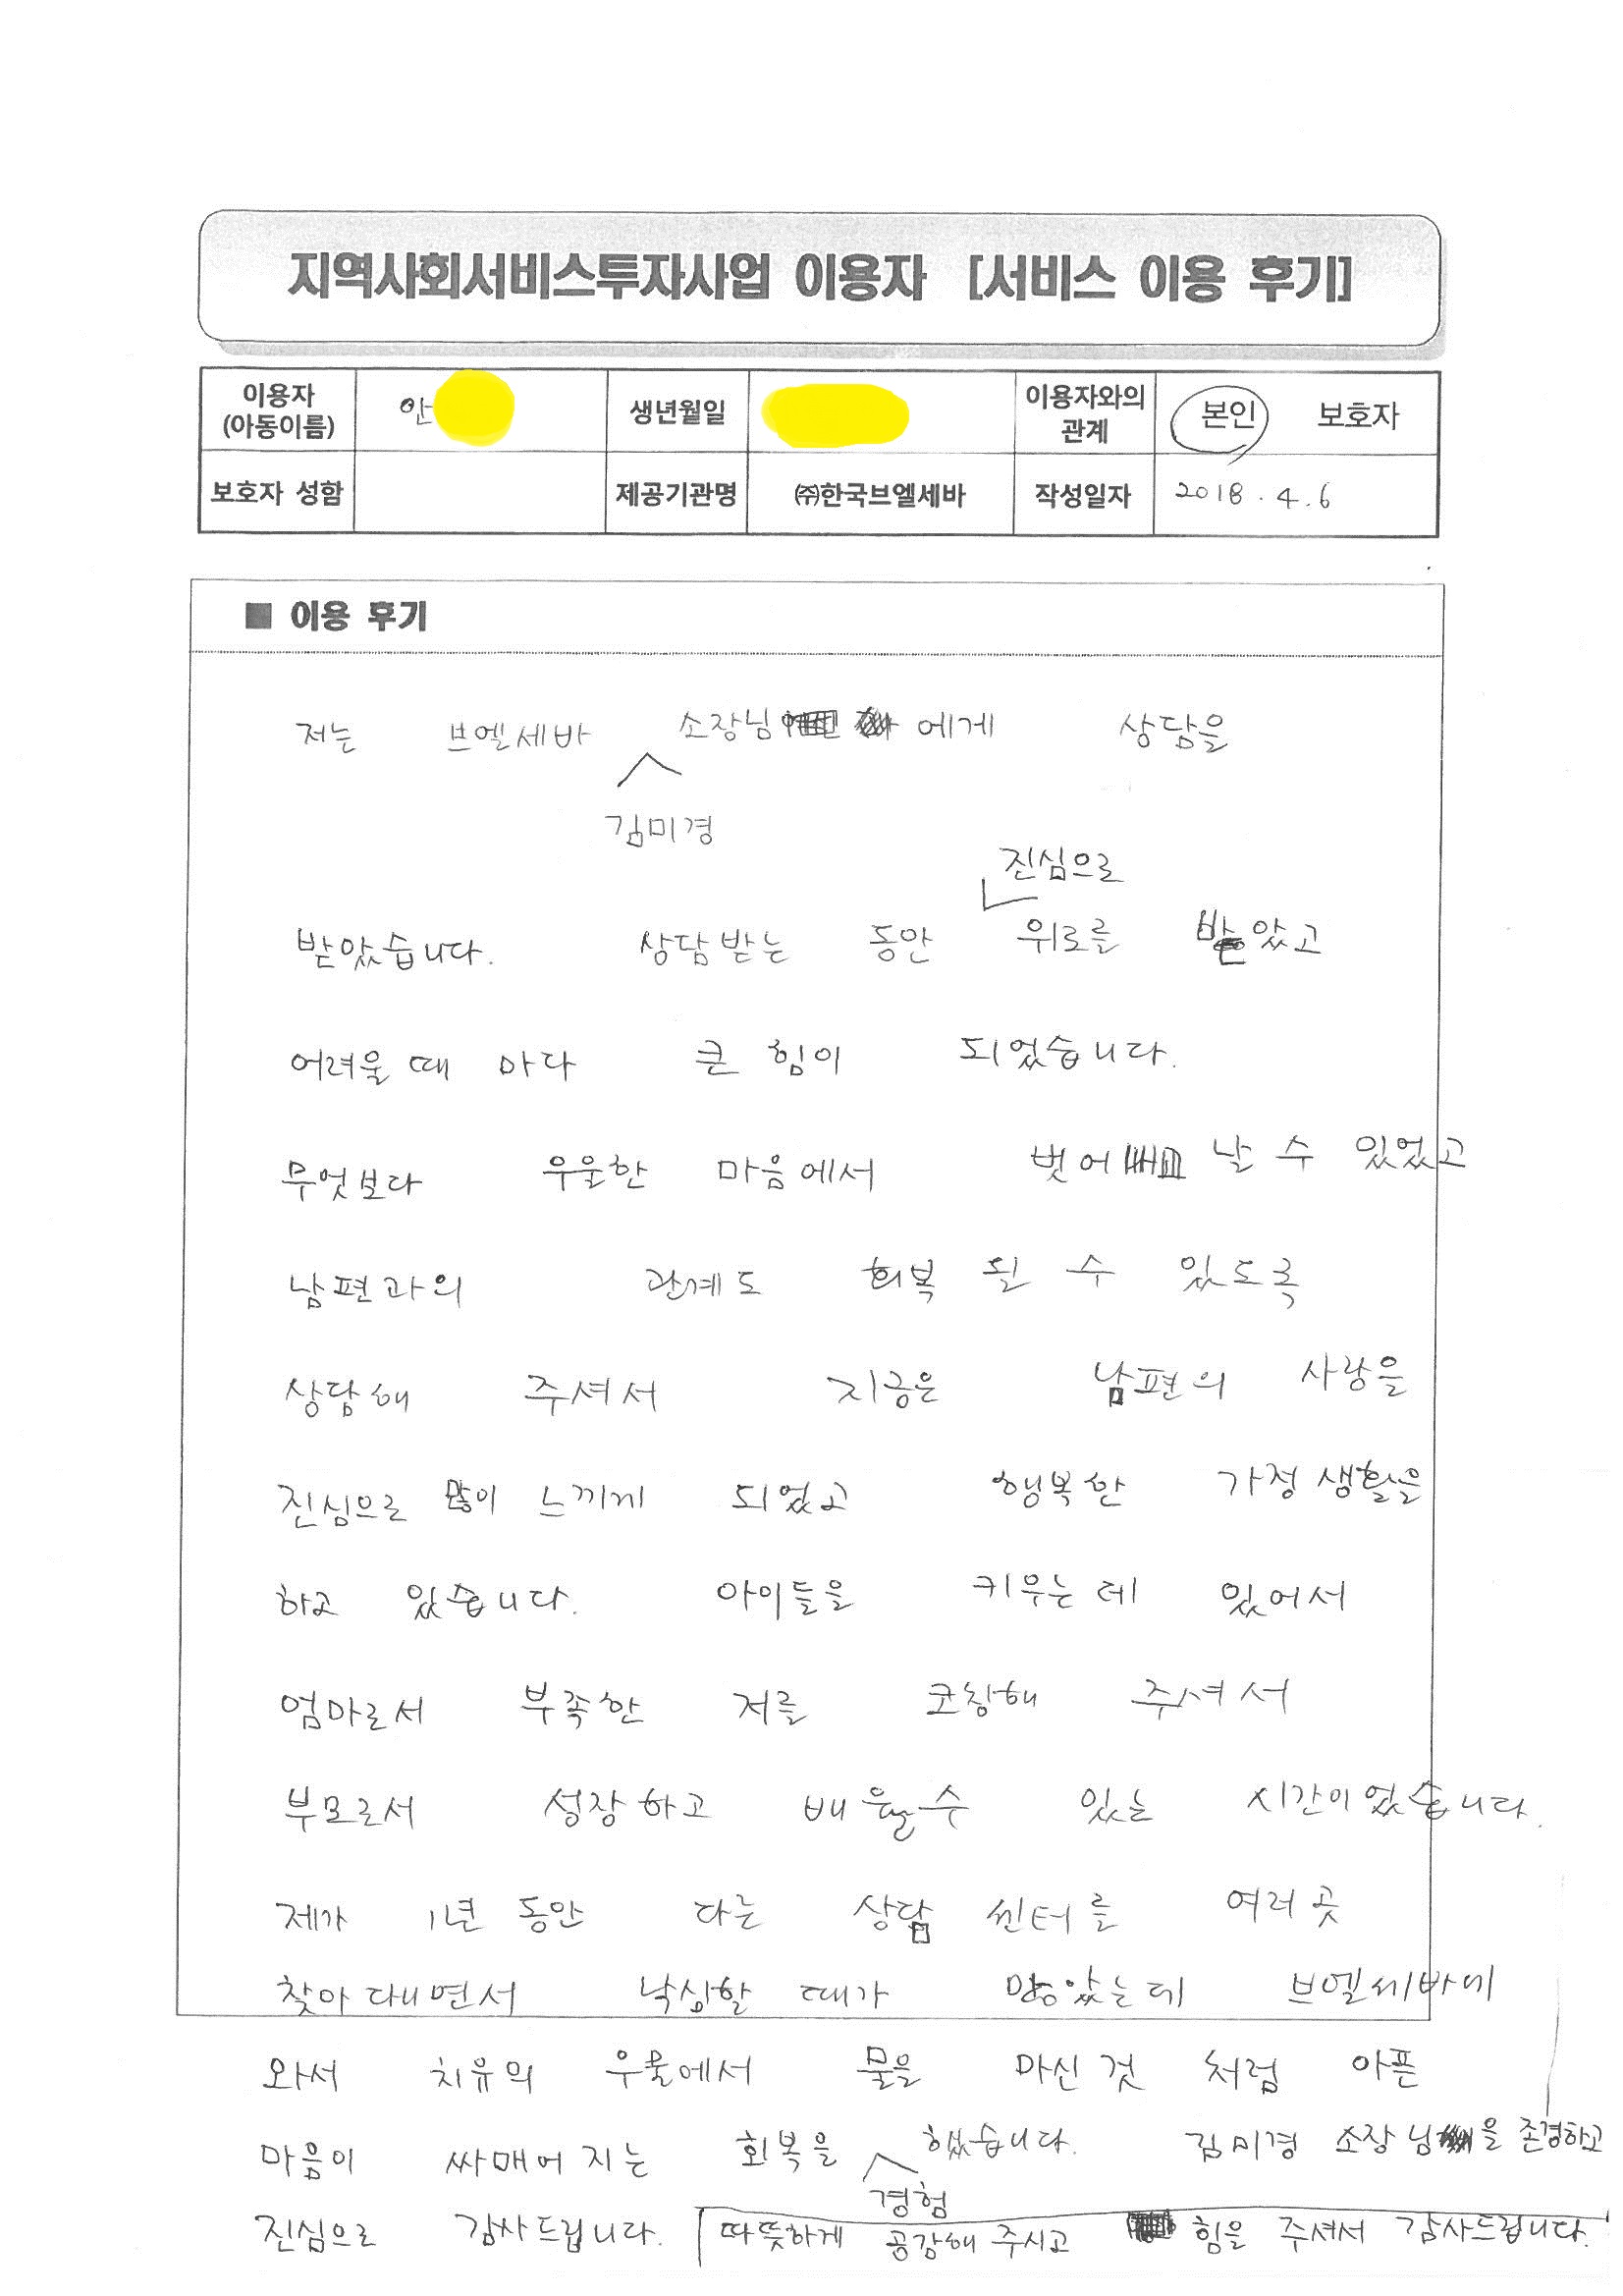 지역사회서비스투자사업 이용자 [서비스 이용 후기]
이용자 (아동이름) 안 생년월일 이용자와의 관계 본인 보호자
보호자 성함 제공기관명 ㈜한국브엘세바 작성일자 2018.4.6
■ 이용 후기
저는 브엘세바 김미경 소장님에게 상담을
받았습니다. 상담받는 동안 진심으로 위로를 받았고
어려울 때 마다 큰 힘이 되었습니다.
무엇보다 우울한 마음에서 벗어날 수 있었고
남편과의 관계도 회복 될 수 있도록
상담해 주셔서 지금은 남편의 사랑을
진심으로 많이 느끼게 되었고 행복한 가정생활을
하고 있습니다. 아이들을 키우는데 있어서
엄마로서 부족한 저를 코칭해 주셔서
부모로서 성장하고 배울수 있는 시간이었습니다.
제가 1년 동안 다른 상담 쎈터를 여러 곳
찾아 다니면서 낙심할 때가 많았는데 브엘세바에
와서 치유의 우물에서 물을 마신 것 처럼 아픈
마음이 싸매어 지는 회복을 경험 했습니다. 김미경 소장님을 존경하고
진심으로 감사드립니다. 따뜻하게 공감해 주시고 힘을 주셔서 감사드립니다.